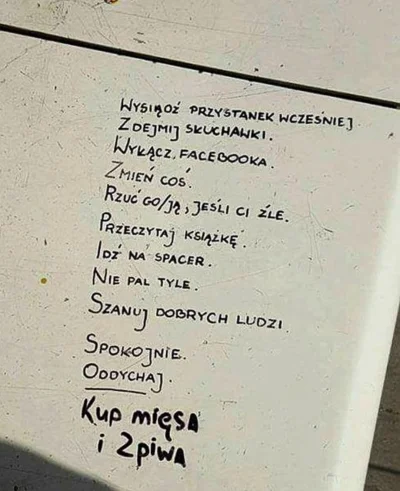 Wysiądź przystanek wcześniej.
Zdejmij słuchawki.
Wyłącz facebooka.
Zmień coś.
Rzuć go/ją, jeśli ci źle.
Przeczytaj książkę.
Idź na spacer.
Nie pal tyle.
Szanuj dobrych ludzi.
Spokojnie.
Oddychaj.
Kup mięsa
i 2piwa